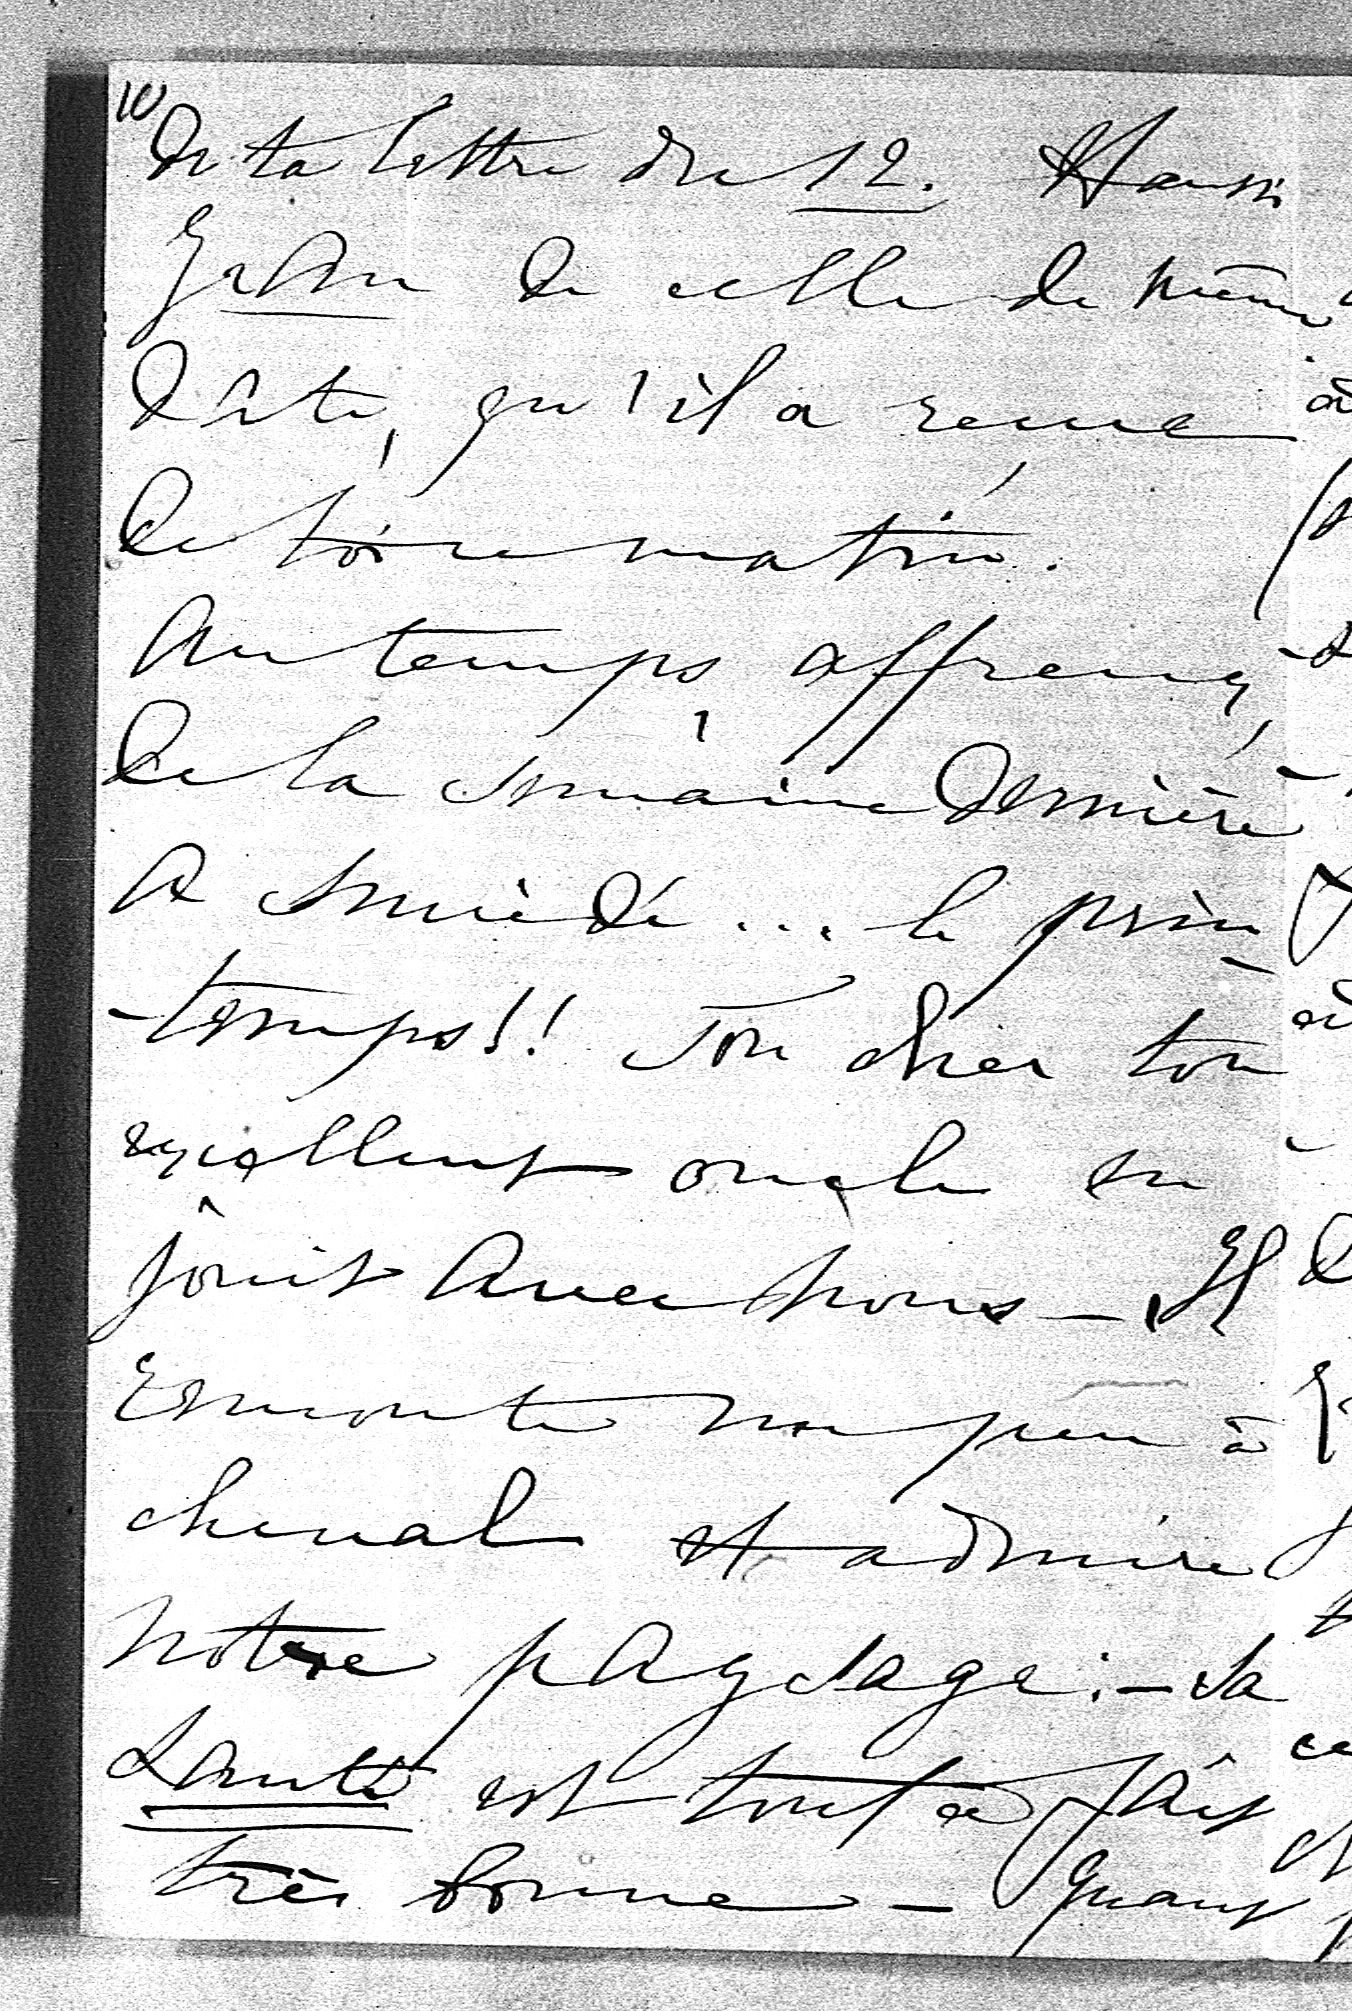 10
de ta lettre du 12. Aussi
Gradu de celle de même
date, qu'il a reçue
de toi ce matin.
Au temps affreux,
de la semaine dernière
a succédé... le prin
-temps!! Ton cher ton
excellent oncle en
jouit avec nous - Il
remonte un peu à
cheval et admire
notre paysage: - sa
santé est tout à fait
très bonne - quant